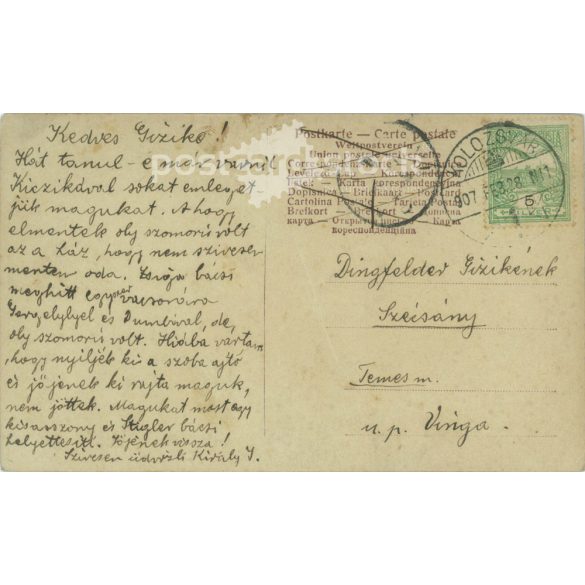 Kedves Gizike!
Hát tanul-e már varrni?
Kiczikával sokat emleget
jük magukat. A hogy
elmentek oly szomorú volt
az a ház, hogy nem szivesen
mentem oda. Zsiga bácsi
meghitt egyszer vacsorára
Gergelylyel és Dumbival, de,
oly szomorú volt. Hiába vártam,
hogy nyiljék ki a szoba ajtó
és jőjenek ki rajta maguk,
nem jöttek. Magukat most egy
kisasszony és Stigler bácsi
helyettesiti. Jőjenek vissza!
Szivesen üdvözli Király J.
Postkarte — Carte postale
Weltpostverein
Union postale universelle
Correspondenzkarte
Levelező-Lap — Korespondenční
Karta korespondencyjna
Dopisnica — Briefkaart — Postcard
Cartolina Postale — Tarjeta Postal
Brefkort
карта — Открытое письмо — Карта
кореспонденциина
KOLOZSVÁR
907 FEB 23
5
FILLÉR
Dingfelder Gizikének
Szécsány
Temes m.
u. p. Vinga.